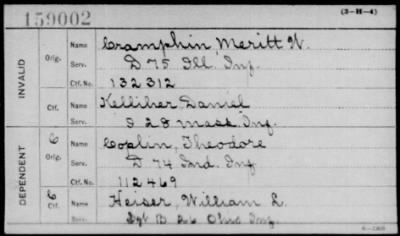 159002
(3-H-4)
INVALID
Orig.
Name Cramphin, Meritt W.
Serv. D 75 Ill. Inf.
Ctf. No. 132312
Ctf.
Name Kelliher Daniel
Serv. I 28 Mass. Inf.
DEPENDENT
C Orig.
Name Coplin, Theodore
Serv. D 74 Ind. Inf.
Ctf. No. 112469
C Ctf.
Name Heiser, William L.
Serv. Sgt B 26 Ohio Inf.